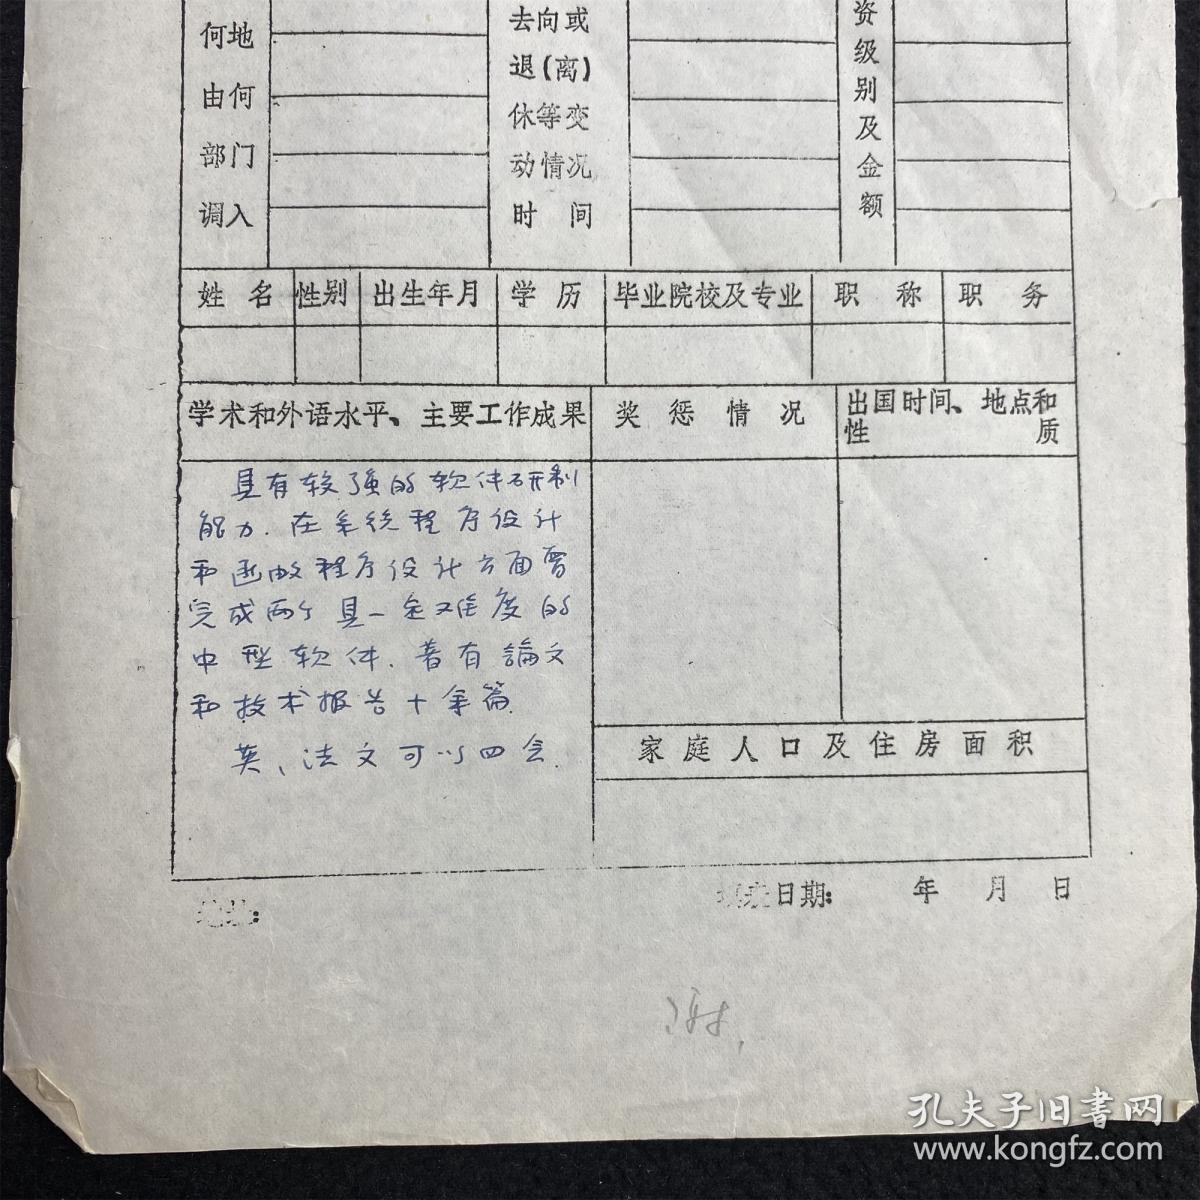 何地
由何
部门
调入
去向或
退(离)
休等变
动情况
时 间
资级别及金额
姓 名 性别 出生年月 学 历 毕业院校及专业 职 称 职 务
学术和外语水平、主要工作成果 奖 惩 情 况 出国时间、地点和
性 质
具有较强的软件研制
能力.在系统程序设计
和函数程序设计方面曾
完成两个具一定难度的
中型软件.著有論文
和技术报告十余篇.
英、法文可以四会.
家 庭 人 口 及 住 房 面 积
日期: 年 月 日
孔夫子旧書网
www.kongfz.com